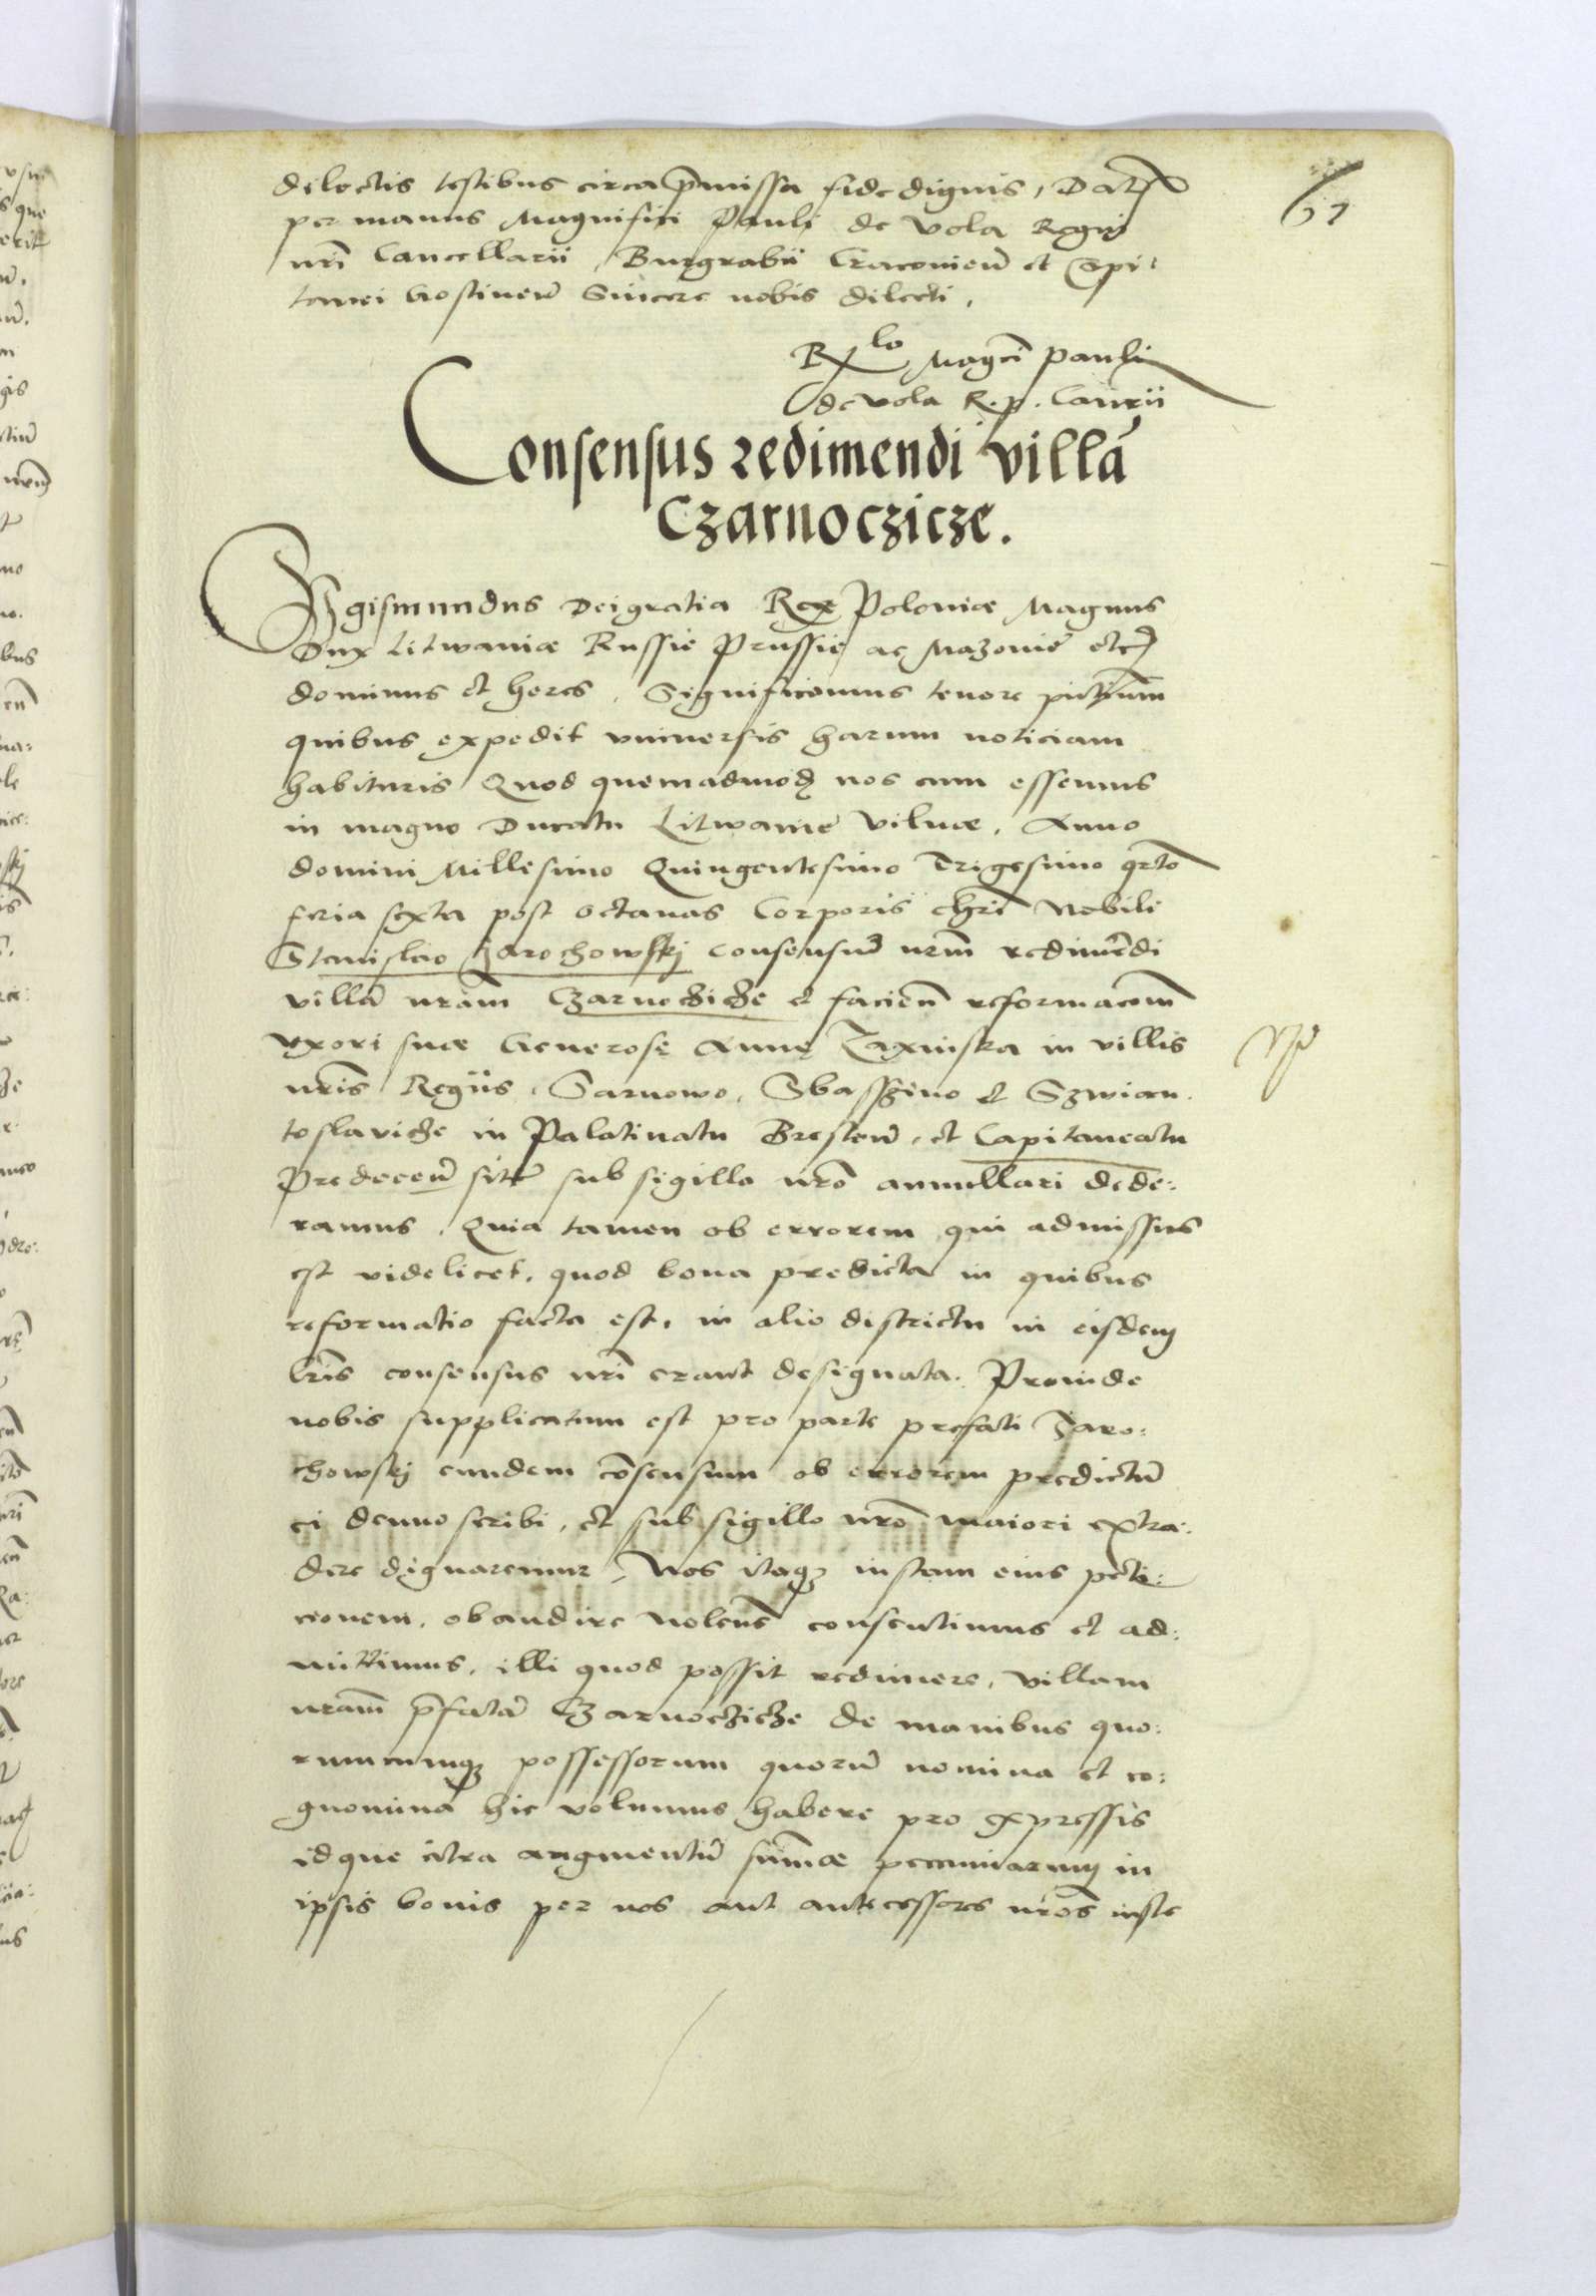 61
delectis testibus circa p̄missa fide dignis, Datū
per manus Magnifici Pauli de Vola Regni
nr̄i Cancellarii, Burgrabii Cracovien̄ et Capi:
tanei Gostinen̄ Sincere nobis dilecti.
R̄lo Magci Pauli
de Vola R. p. Canrii
Consensus redimendi villā
Czarnoczicze.
Sigismundus Dei gratia Rex Poloniæ Magnus
Dux Litwaniæ Russiæ Prussiæ ac Mazoviæ etc̄
dominus et heres. Significamus tenore pn̄tium
quibus expedit universis harum noticiam
habituris Quod quemadmodū nos cum essemus
in magno Ducatu Litwaniæ Vilnæ, Anno
domini Millesimo Quingentesimo Trigesimo qrto
feria sexta post octavas Corporis chri̅ Nobili
Stanislao Jarochowskj consensum nr̄m redimēdi
villā nrām Czarnocziche et faciēn̄ reformacōm
vxori suæ Generosę Annę Laxinska in villis
nris̄ Regiis, Sarnowo, Sbasszino et Szwian:
toslaviche in Palatinatu Bresten̄, et Capitaneatu
Predecen̄ sitē sub sigillo nrō annullari dede:
ramus. Quia tamen ob errorem qui admissus
est videlicet, quod bona predicta in quibus
reformatio facta est, in alio districtu in eisdem
lrīs consensus nrī erant designata. Proinde
nobis supplicatum est pro parte prefati Jaro:
chowskj eundem cōsensum ob errorem predictū
ei denuo scribi, et sub sigillo nrō maiori extra:
dere dignaremur, Nos itaqȝ iustam eius peti:
cionem, obaudire nolentē consentimus et ad:
mittimus, illi quod possit redimere, villam
nrām p̄fatā Czarnoczicze de manibus quo:
rumcumqȝ possessorum quorū nomina et co:
gnomina hic volumus habere pro expressis
idque citra augmentū sum̄æ pecuniarum in
ipsis bonis per nos aut antecessores nrōs iuste